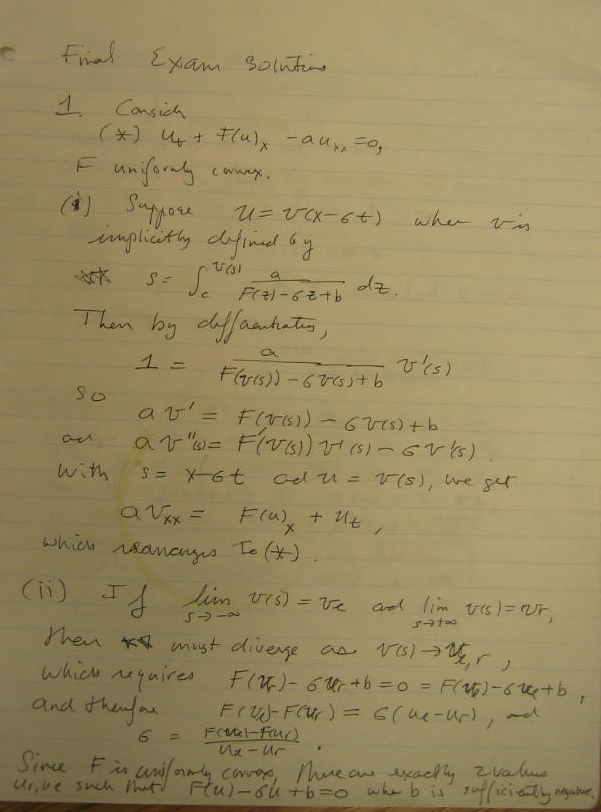 Final Exam Solutions
1. Consider
(*) u_t + F(u)_x - a u_xx = 0,
F uniformly convex.
(i) Suppose u = v(x-σt) where v is
implicitly defined by
** s = ∫_c^{v(s)} a / (F(z) - σz + b) dz.
Then by differentiating,
1 = a / (F(v(s)) - σv(s) + b) v'(s)
so
a v' = F(v(s)) - σv(s) + b
and a v''(s) = F'(v(s)) v'(s) - σv'(s).
With s = x-σt and u = v(s), we get
a v_xx = F(u)_x + u_t,
which rearranges to (*).
(ii) If lim_{s→-∞} v(s) = v_l and lim_{s→+∞} v(s) = v_r,
then ** must diverge as v(s) → u_{l,r},
which requires F(u_r) - σu_r + b = 0 = F(u_l) - σu_l + b,
and therefore F(u_l) - F(u_r) = σ(u_l - u_r), and
σ = (F(u_l) - F(u_r)) / (u_l - u_r).
Since F is uniformly convex, there are exactly 2 values
u_r, u_l such that F(u) - σu + b = 0 when b is sufficiently negative.